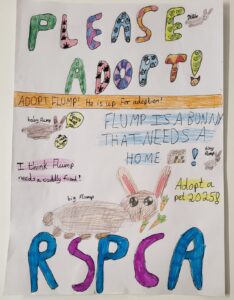 PLEASE
ADOPT!
ADOPT FLUMP! He is up for adoption!
baby Flump
FLUMP IS A BUNNY
THAT NEEDS A
HOME
I think Flump
needs a cuddly friend!
big Flump
Adopt a
pet 2025!
RSPCA